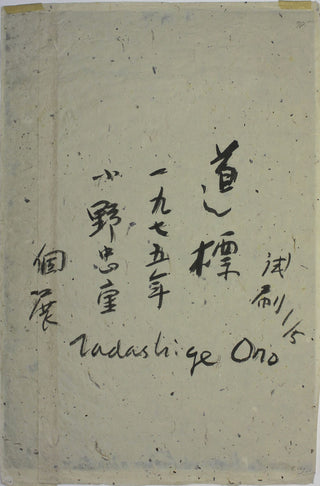 試刷 1/5
道標
一九七五年
小野忠重
個展
Tadashige Ono